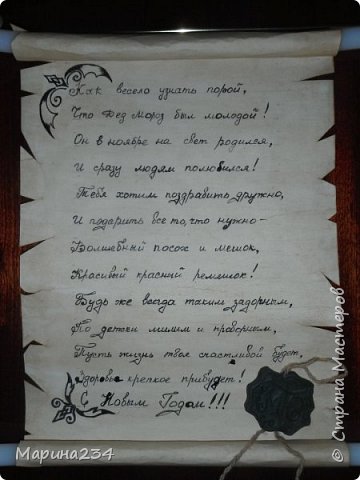 Как весело узнать порой,
Что Дед Мороз был молодой!
Он в ноябре на свет родился,
И сразу людям полюбился!
Тебя хотим поздравить дружно,
И подарить все то, что нужно-
Волшебный посох и мешок,
Красивый красный ремешок!
Будь же всегда таким задорным,
По детски милым и проворным,
Пусть жизнь твоя счастливой будет,
Здоровье крепкое прибудет!
С Новым Годом!!!
Марина234
Страна Мастеров